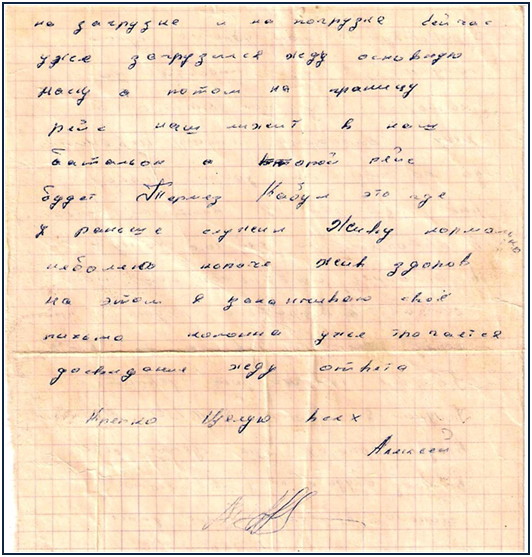 на загрузке и на погрузке сейчас
уже загрузился жду основную
нашу а потом на границу
рейс наш лижит в наш
батальон а второй рейс
будет Термез Кабул это где
я раньше служил Живу нормально
неболею короче жив здоров
на этом я заканчиваю своё
письмо колонна уже трогается
досвидание жду ответа
Крепко Целую всех
Алексей